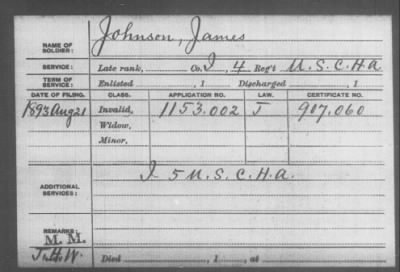 NAME OF SOLDIER: Johnson, James
SERVICE: Late rank, Co. I, 4 Reg't U.S.C.H.A.
TERM OF SERVICE: Enlisted , 1 Discharged , 1
DATE OF FILING. CLASS. APPLICATION NO. LAW. CERTIFICATE NO.
1893 Aug 21 Invalid, 1153.002 J 907.060
Widow,
Minor,
ADDITIONAL SERVICES: I 5 U.S.C.H.A.
REMARKS:
M. M.
Died , 1 , at